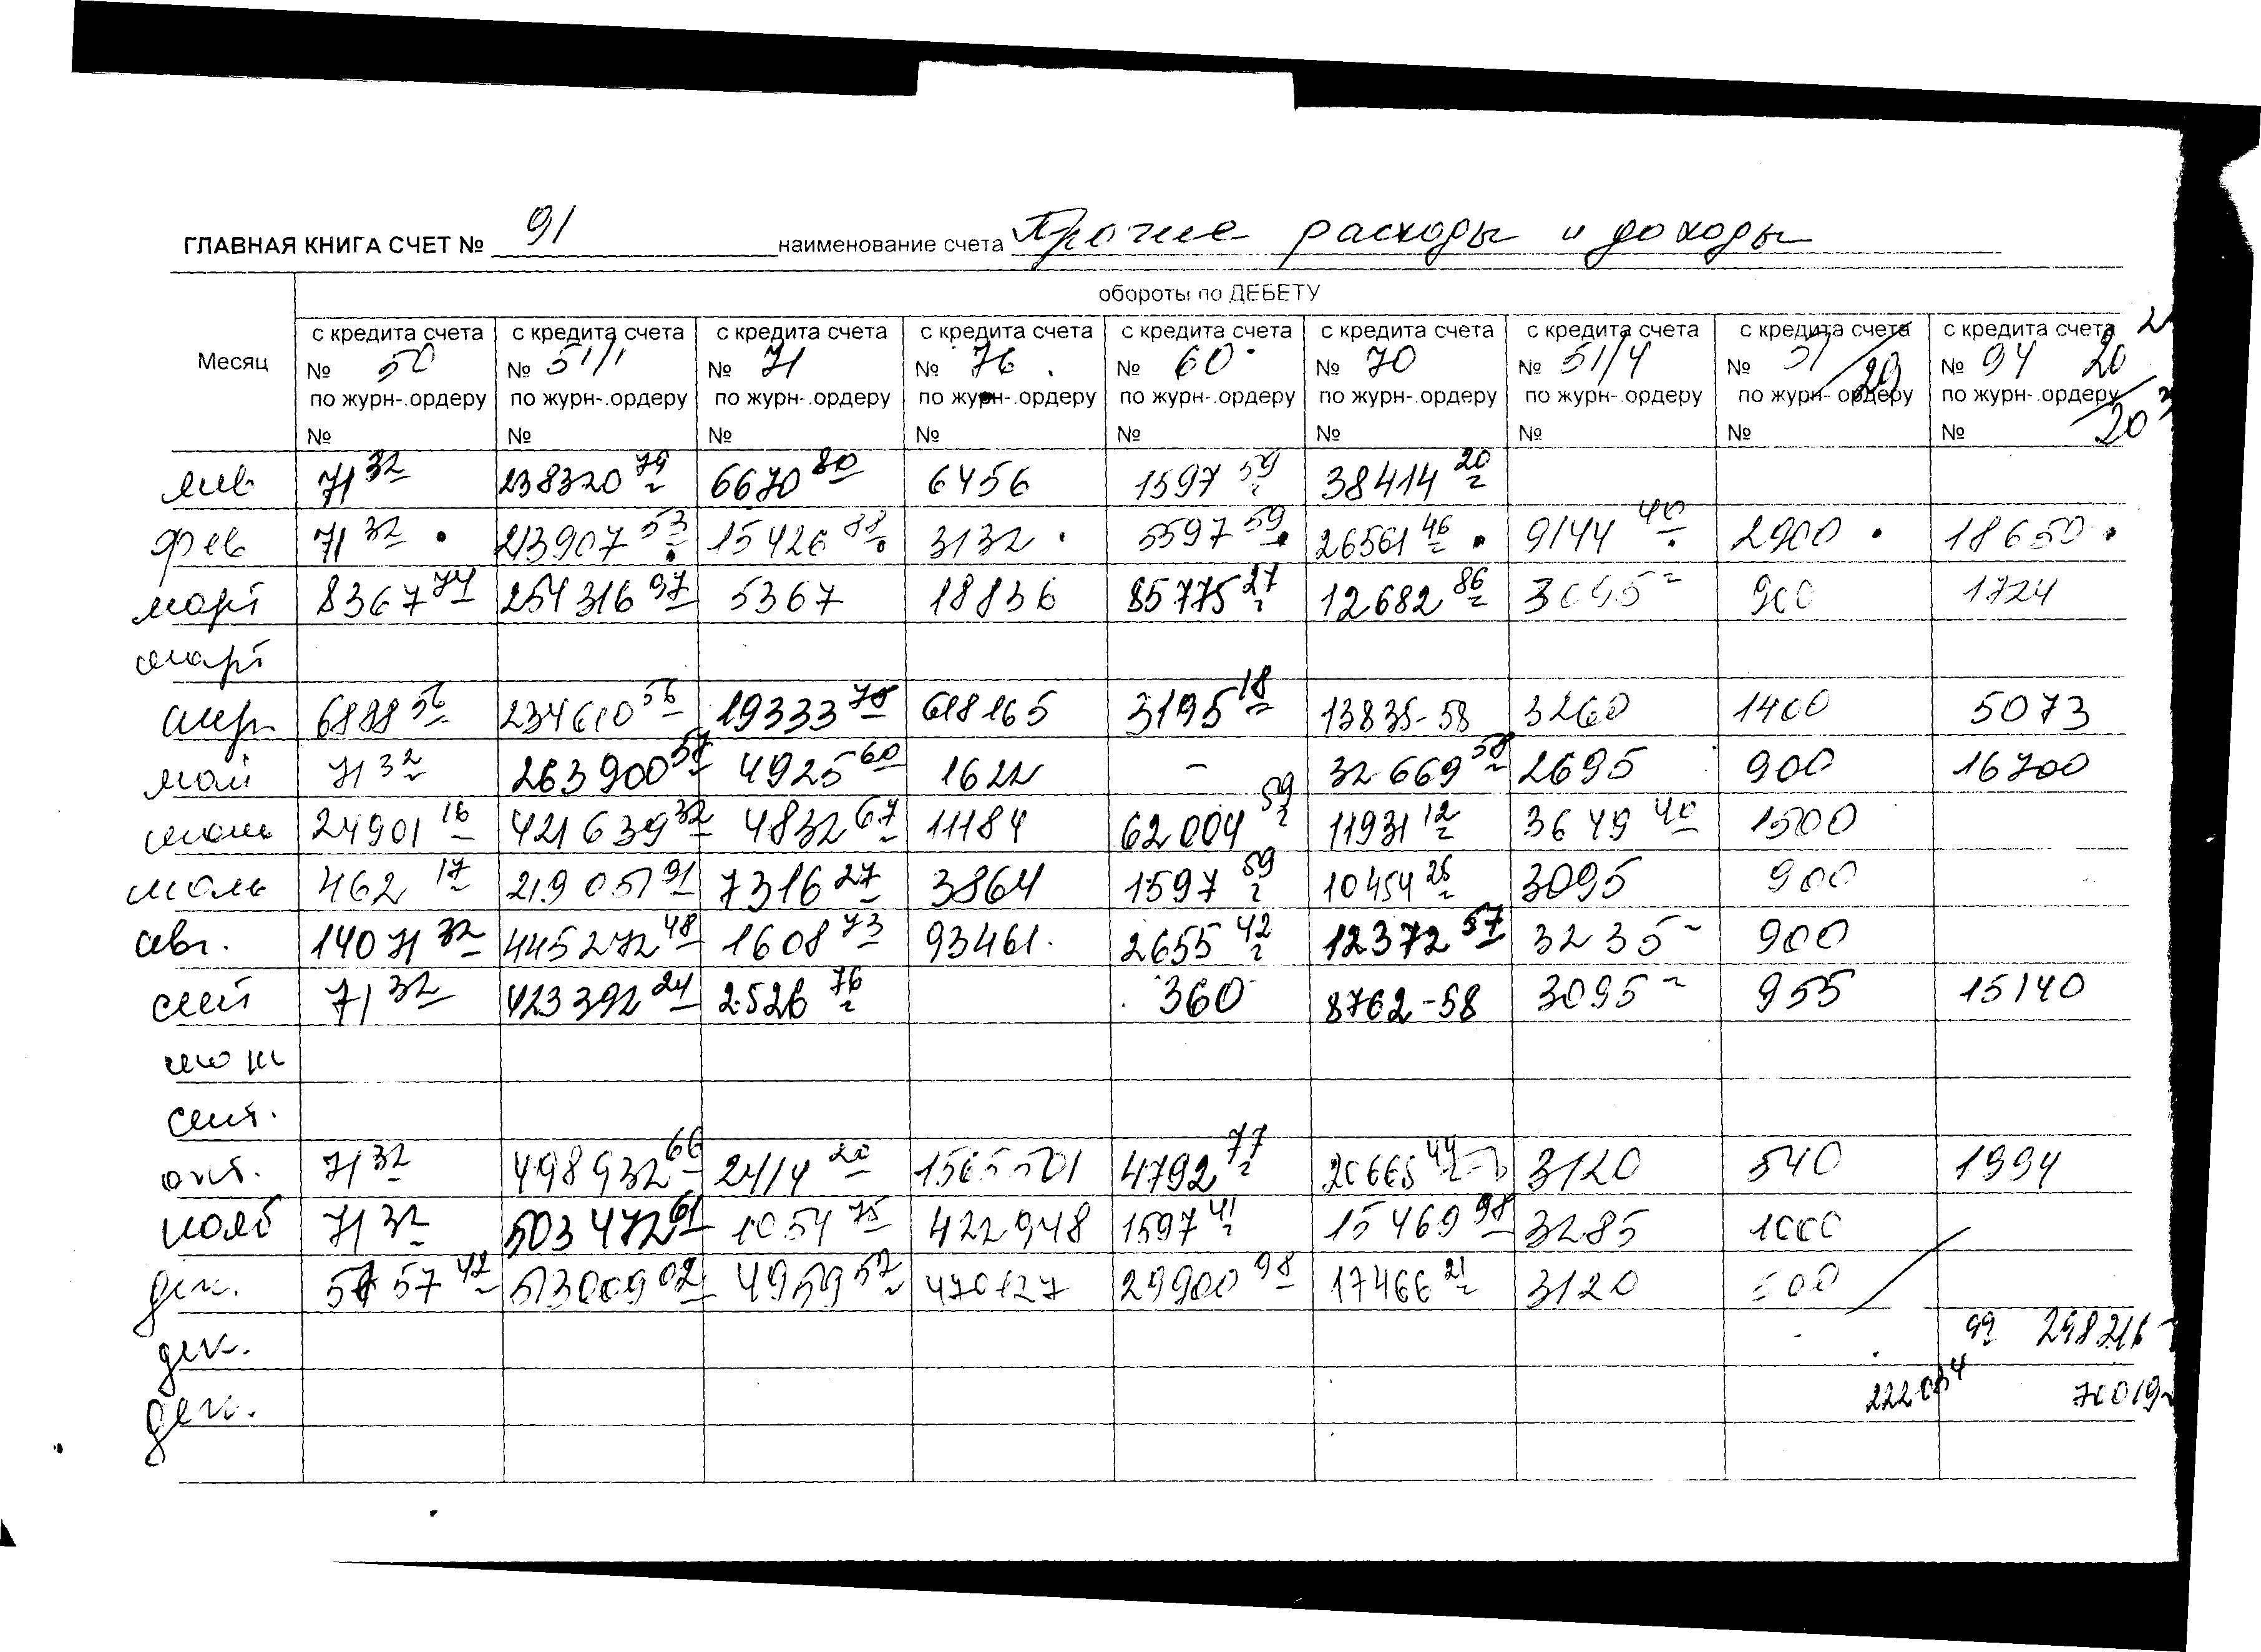 ГЛАВНАЯ КНИГА СЧЕТ № 91 наименование счета Прочие расходы и доходы
обороты по ДЕБЕТУ
Месяц
с кредита счета с кредита счета с кредита счета с кредита счета с кредита счета с кредита счета с кредита счета с кредита счета с кредита счета
№ 50 № 51/1 № 71 № 76 № 60 № 70 № 51/4 № 51/29 № 94 20
по журн-.ордеру по журн-.ордеру по журн-.ордеру по журн-.ордеру по журн-.ордеру по журн-.ордеру по журн-.ордеру по журн- ордеру по журн-.ордеру
№ № № № № № № № № 20
янв 71 32 238320 79 6670 80 6456 1597 59 38414 20
фев 71 32 213907 53 15426 88 3132 5597 59 26561 46 9144 40 2900 18650
март 8367 74 254316 97 5367 18836 85775 27 12682 86 3095 900 1724
март
апр. 6888 56 234610 56 19333 78 618165 3195 18 13835-58 3260 1400 5073
май 71 32 263900 57 4925 60 1622 - 32669 58 2695 900 16700
июнь 24901 16 421639 32 4832 67 11184 62004 59 11931 12 3649 40 1500
июль 462 17 219051 91 7316 27 3864 1597 59 10454 26 3095 900
авг. 14071 32 445272 48 1608 73 93461 2655 42 12372 57 3235 900
сент 71 32 423392 24 2526 76 360 8762-58 3095 955 15140
сент.
окт. 71 32 498932 66 2414 20 1565501 4792 77 20665 44 3120 540 1994
нояб 71 32 503472 61 1054 75 422948 1597 41 15469 98 3285 1000
дек. 5757 42 513009 02 4959 57 470127 29900 98 17466 21 3120
дек. 99 298216
дек. 222084 70019